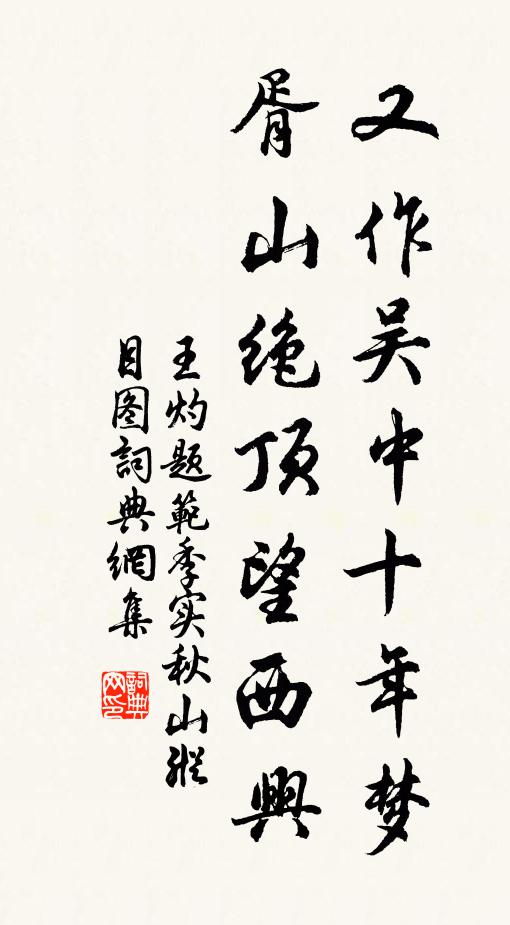 又作吴中十年梦
胥山绝顶望西興
王灼题範季实秋山縱
目图詞典網集
詞典网印